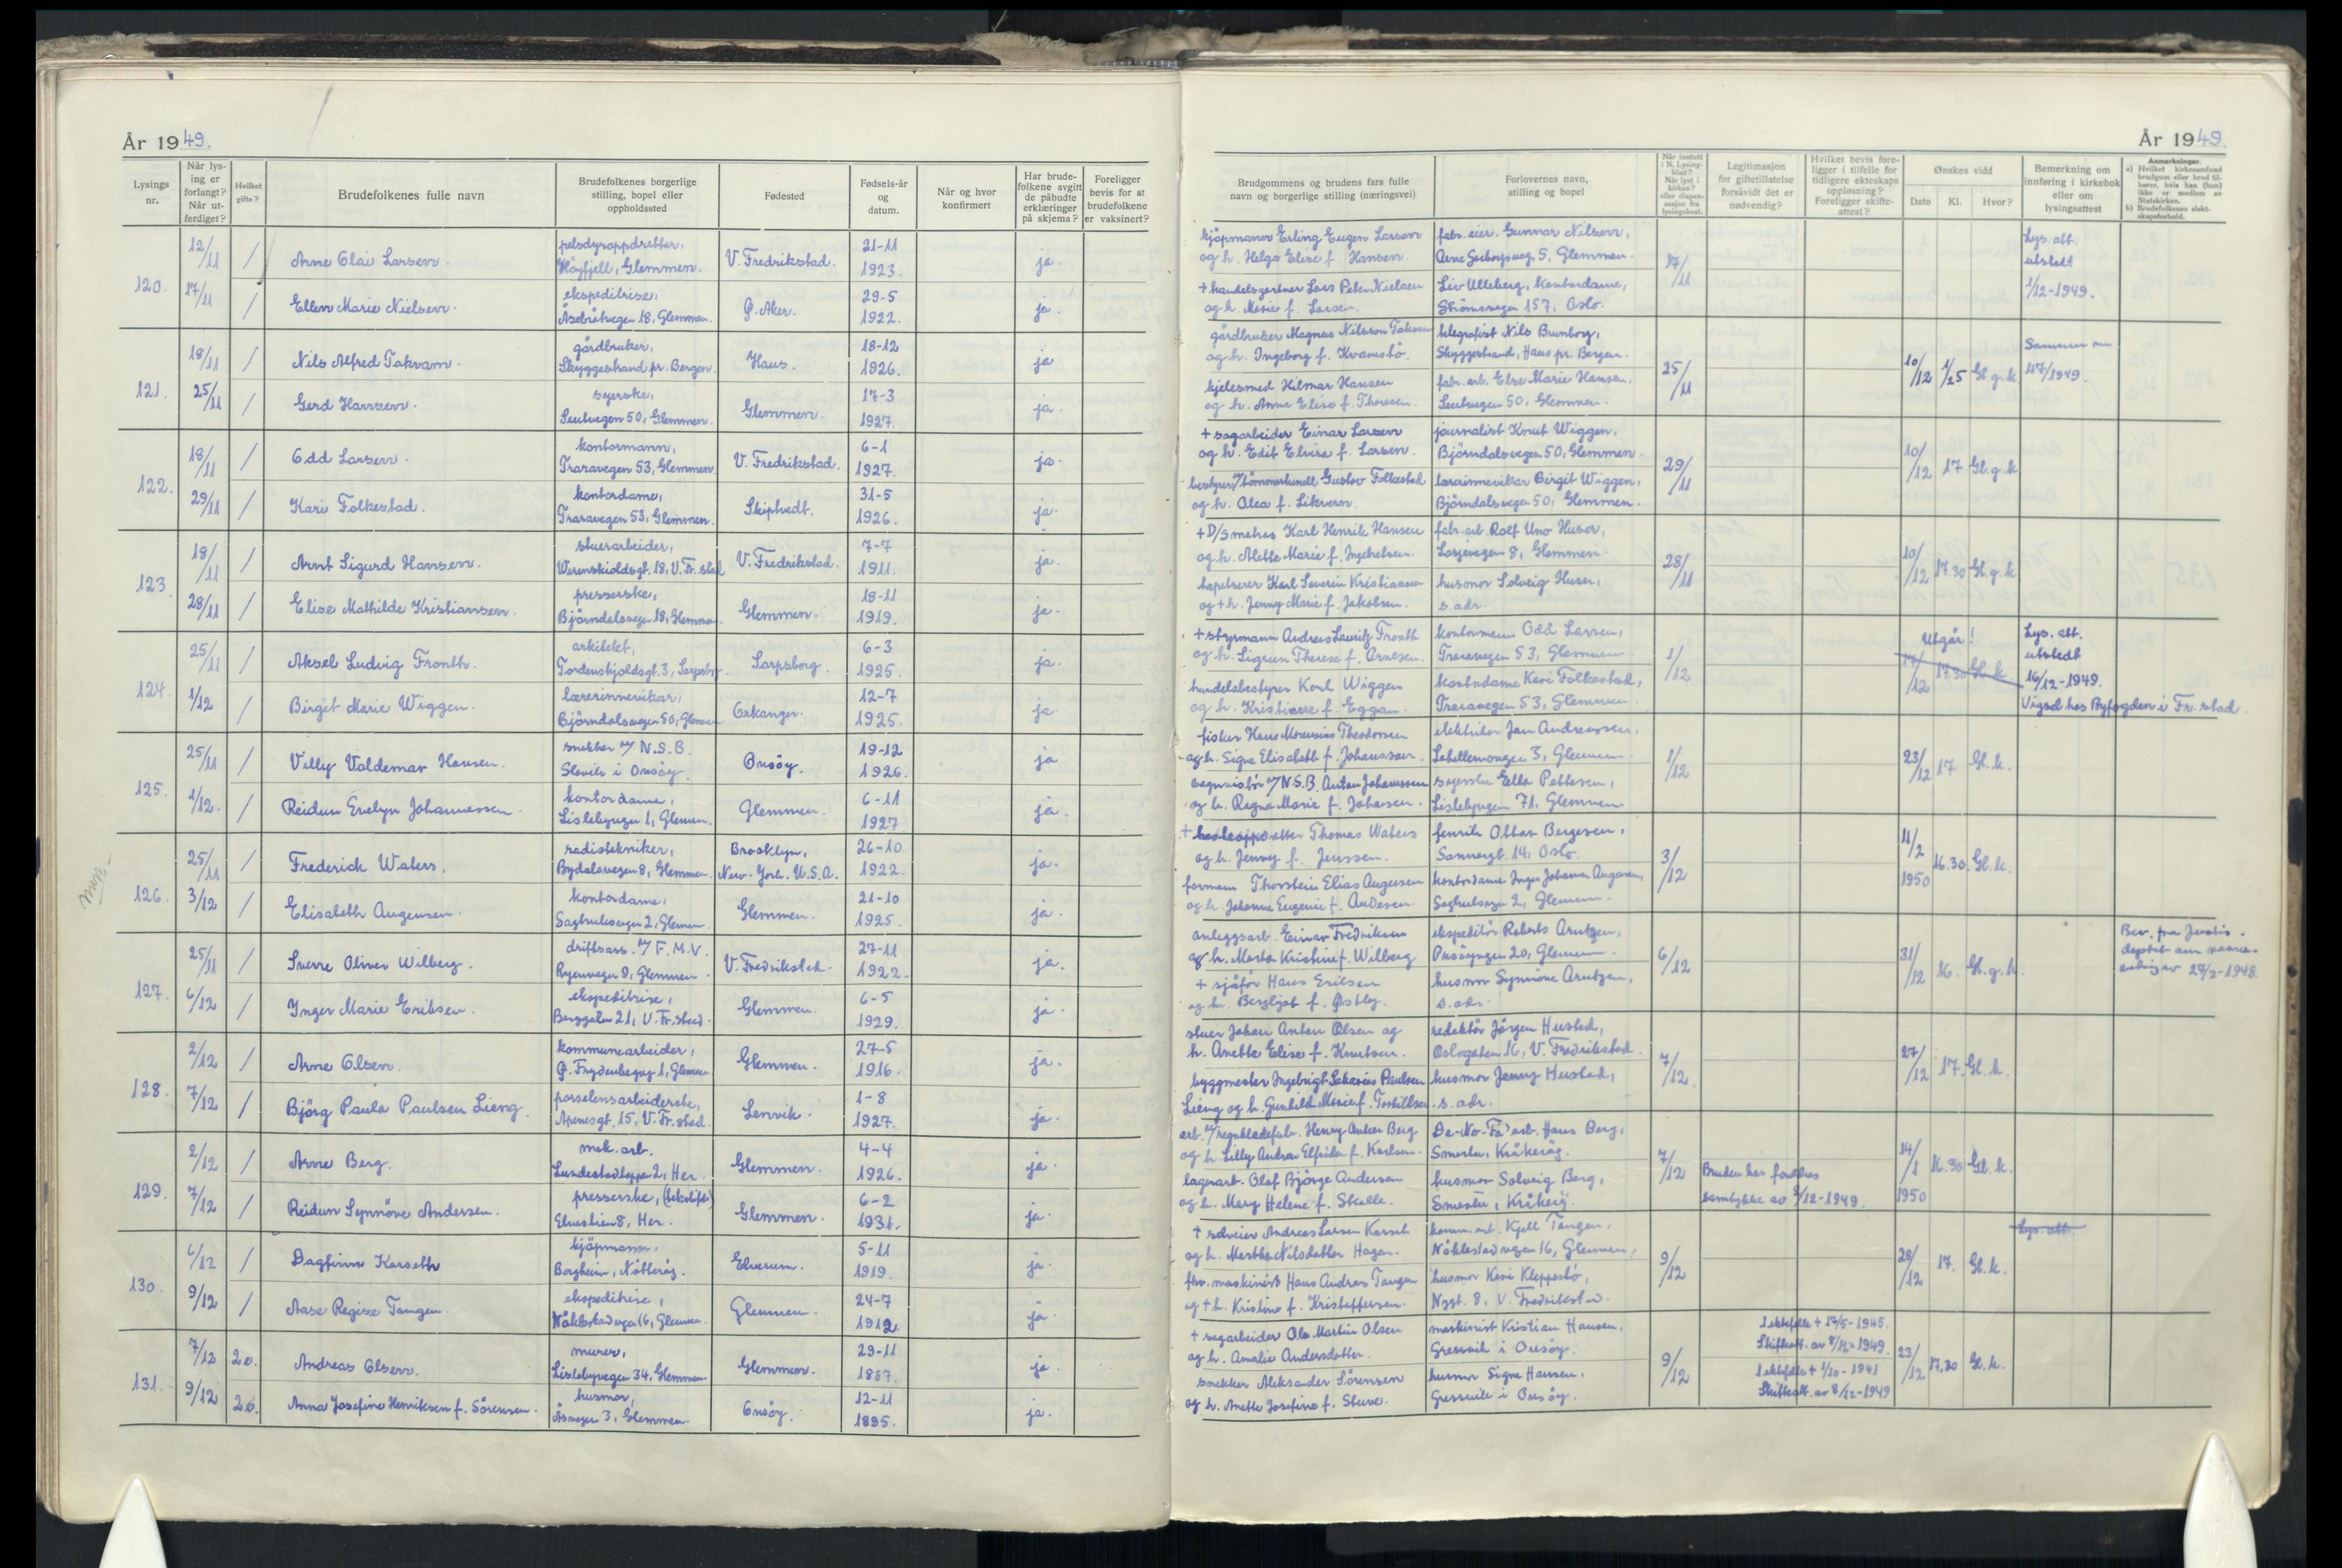 År 1949.
Lysings nr.
Når lysing er forlangt? Når utferdiget?
Hvilket gifte?
Brudefolkenes fulle navn
Brudefolkenes borgerlige stilling, bopel eller oppholdssted
Fødested
Fødsels-år og datum.
Når og hvor konfirmert
Har brudefolkene avgitt de påbudte erklæringer på skjema?
Foreligger bevis for at brudefolkene er vaksinert?
120. 12/11 / Arne Olai Larsen. pelsdyroppdretter, Höyfjell, Glemmen. V. Fredrikstad. 21-11 1923. ja.
17/11 / Ellen Marie Nielsen. ekspeditrise, 18, Glemmen. Ø. Aker. 29-5 1922. ja.
121. 18/11 / Nils Alfred Takvam. gårdbruker, Skyggestrand pr. Bergen. Haus. 18-12 1926. ja
25/11 / Gerd Hansen. syerske, Leutvegen 50, Glemmen. Glemmen. 17-3 1927. ja.
122. 18/11 / Odd Larsen. kontormann, Traravegen 53, Glemmen. V. Fredrikstad. 6-1 1927. ja.
29/11 / Kari Folkestad. kontordame, Traravegen 53, Glemmen. Skiptvedt. 31-5 1926. ja.
123. 18/11 / Arnt Sigurd Hansen. stuerarbeider, Werenskioldsgt. 18, V. Fr.stad V. Fredrikstad. 7-7 1911. ja.
28/11 / Elise Mathilde Kristiansen. presserske, Björndalsvegen 18, Glemmen. Glemmen. 18-11 1919. ja.
124. 25/11 / Aksel Ludvig Fronth. arkitekt, Tordenskjoldsgt. 3, Sarpsborg Sarpsborg. 6-3 1925. ja.
1/12 / Birgit Marie Wiggen. lærerinnevikar, Björndalsvegen 50, Glemmen Orkanger. 12-7 1925. ja.
125. 25/11 / Villy Valdemar Hansen. snekker v/ N.S.B. Slevik i Onsöy. Onsöy. 19-12 1926. ja
1/12. / Reidun Evelyn Johannessen. kontordame, Lislebyvegen 1, Glemmen. Glemmen. 6-11 1927 ja.
126. 25/11 / Frederick Waters. radiotekniker, Bydalsvegen 8, Glemmen. Brooklyn, New-York. U.S.A. 26-10 1922. ja.
3/12 / Elisabeth Augensen. kontordame, 2, Glemmen. Glemmen. 21-10 1925. ja.
127. 25/11 / Sverre Oliver Wilberg. driftsass. v/ F.M.V. 9, Glemmen. V. Fredrikstad. 27-11 1922. ja.
6/12 / Inger Marie Eriksen. ekspeditrise, Berggaten 21, V. Fr.stad. Glemmen. 6-5 1929. ja.
128. 2/12 / Arne Olsen. kommunearbeider, Ø. 1, Glemmen Glemmen. 27-5 1916. ja.
7/12 / Björg Paula Paulsen Lieng. porselensarbeiderske, Apenesgt. 15, V. Fr.stad. Lenvik. 1-8 1927. ja.
129. 2/12 / Arne Berg. mek. arb. 2, Her. Glemmen. 4-4 1926. ja.
7/12 / Reidun Synnöve Andersen. presserske, 8, Her. Glemmen. 6-2 1931. ja.
130. 6/12 / Dagfinn Karseth kjöpmann, Borgheim, Nötteröy. Elverum. 5-11 1919. ja.
9/12 / Aase Regine Tangen. ekspeditrise, Nöklestadvegen 16, Glemmen. Glemmen. 24-7 1912. ja.
131. 7/12 2e. Andreas Olsen. murer, Lislebyvegen 34, Glemmen. Glemmen. 29-11 1887. ja
9/12 2e. Anna Josefine Henriksen f. Sörensen. husmor, 3, Glemmen. Onsöy. 12-11 1895. ja.
År 1949.
Brudgommens og brudens fars fulle navn og borgerlige stilling (næringsvei)
Forlovernes navn, stilling og bopel
Legitimasjon for giftertillatelse forsåvidt det er nødvendig?
Hvilket bevis foreligger i tilfelle for tidligere ekteskaps oppløsning? Foreligger skifteattest?
Ønskes vidd
Dato Kl. Hvor?
Bemerkning om innføring i kirkebok eller om lysingsattest
Anmerkninger.
kjöpmann Erling Eugen Larsen fabr. eier. Gunnar Nilsen, Lys. att.
og h. Helga Elise f. Hansen. 5, Glemmen. 17/11 utstedt
+ handelsgartner Lars Peter Nielsen Liv Ulleberg, kontordame, 1/12-1949.
og h. Marie f. Larsen. Strömsvegen 157, Oslo.
gårdbruker Magnus Nilsson Takvam telegrafist Nils Brunborg,
og h. Ingeborg f. Kvamstö. Skyggestrand, Haus pr. Bergen. 25/11 10/12 Gl. g. k. Sammen
kjelesmed Hilmar Hansen fabr. arb. Else Marie Hansen,
og h. Anna Elise f. Thoresen. Leutvegen 50, Glemmen.
+ sagarbeider Einar Larsen journalist Knut Wiggen,
og h. Edit Elvira f. Larsen. Björndalsvegen 50, Glemmen. 29/11 10/12 17 Gl. g. k.
Gustav Folkestad lærerinnevikar Birgit Wiggen,
og h. Olea f. Björndalsvegen 50, Glemmen.
+ D/S Karl Henrik Hansen fabr. arb. Rolf Uno Huser,
og h. Alette Marie f. Ingebretsen. 8, Glemmen. 28/11 10/12 17.30 Gl. g. k
tapetserer Karl Severin Kristiansen husmor Solveig Huser,
og + h. Jenny Marie f. Jakobsen. s. adr.
+ styrmann Andreas Lauritz Fronth kontormann Odd Larsen, Utgår! Lys. att.
og h. Sigrun Therese f. Arnesen. Traravegen 53, Glemmen. 1/12 17.30 Gl. k. utstedt
handelsbestyrer Karl Wiggen kontordame Kari Folkestad, 16/12-1949.
og h. Kristiane f. Eggan. Traravegen 53, Glemmen. Vigsel hos Byfogden i Fr.stad.
fisker Hans Theodorsen elektriker Jan Andreassen,
og h. Signe Elisabeth f. Johanssen. 3, Glemmen. 1/12 23/12 17 Gl. k.
v/ N.S.B. Anton Johannessen syerske Ella Pettersen,
og h. Regna Marie f. Johansen. Lislebyvegen 71, Glemmen
+ Thomas Waters Ottar Bergersen,
og h. Jenny f. Jenssen. 14, Oslo. 3/12 11/2 1950 16.30. Gl. k.
formann Thorstein Elias Augensen kontordame Inger Johanne Augensen,
og h. Johanne Eugenie f. Andersen. 2, Glemmen.
anleggsarb. Einar Fredriksen ekspeditör Roberts Arntzen, Bev. fra Justis-
og h. Marta Kristine f. Wilberg Onsöyvegen 20, Glemmen. 6/12 31/12 16. Gl. g. k. deptet om navne-
+ sjåför Hans Eriksen husmor Synnöve Arntzen, av 27/2-1948.
og h. Bergljot f. Østby. s. adr.
stuer Johan Anton Olsen og redaktör Jörgen Hustad,
h. Anette Elise f. Knutsen. Oslogaten 16, V. Fredrikstad. 7/12. 27/12 17. Gl. k.
byggmester Ingebrigt Sakarias Paulsen husmor Jenny Hustad,
Lieng og h. Gunhild Marie f. Torkillsen. s. adr.
Henry Anker Berg De-No-Fa arb. Hans Berg,
og h. Lilly Andrea Elfrida f. Karlsen. Kråkeröy. 7/12 Bruden har foreldres 14/1 16.30 Gl. k.
lagerarb. Olaf Björge Andersen husmor Solveig Berg, samtykke av 2/12-1949. 1950
og h. Mary Helene f. Skalle. Kråkeröy.
+ selveier Andreas Larsen Karset komm. arb. Kjell Tangen, Lys. att.
og h. Marthe Nilsdatter Hagen. Nöklestadvegen 16, Glemmen, 9/12 28/12 17. Gl. k.
fhv. maskinist Hans Andreas Tangen husmor Kari Kleppestö,
og + h. Kristine f. Kristoffersen. Nygt. 8, V. Fredrikstad.
+ sagarbeider Ole Martin Olsen maskinist Kristian Hansen, 1 ektefelle + 17/5-1945.
og h. Amalie Andersdatter. Gressvik i Onsöy. 9/12 Skifteatt. av 8/12-1949. 23/12 17.30 Gl. k.
snekker Aleksander Sörensen husmor Signe Hansen, 1 ektefelle + 1/10-1941
og h. Anette Josefine f. Gressvik i Onsöy. Skifteatt. av 8/12-1949